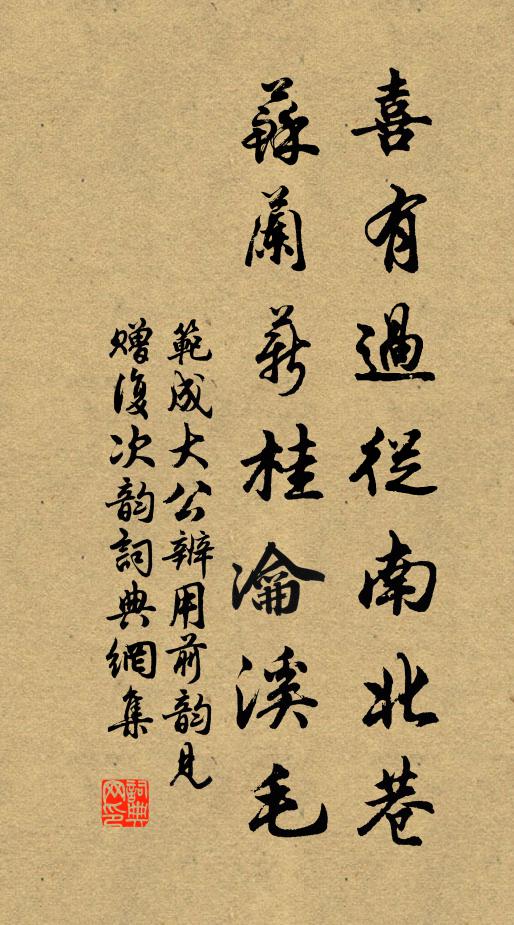 喜有過從南北巷
蘇蘭薪桂瀹溪毛
範成大公辨用前韵見
贈復次韵詞典網集
詞典
网印